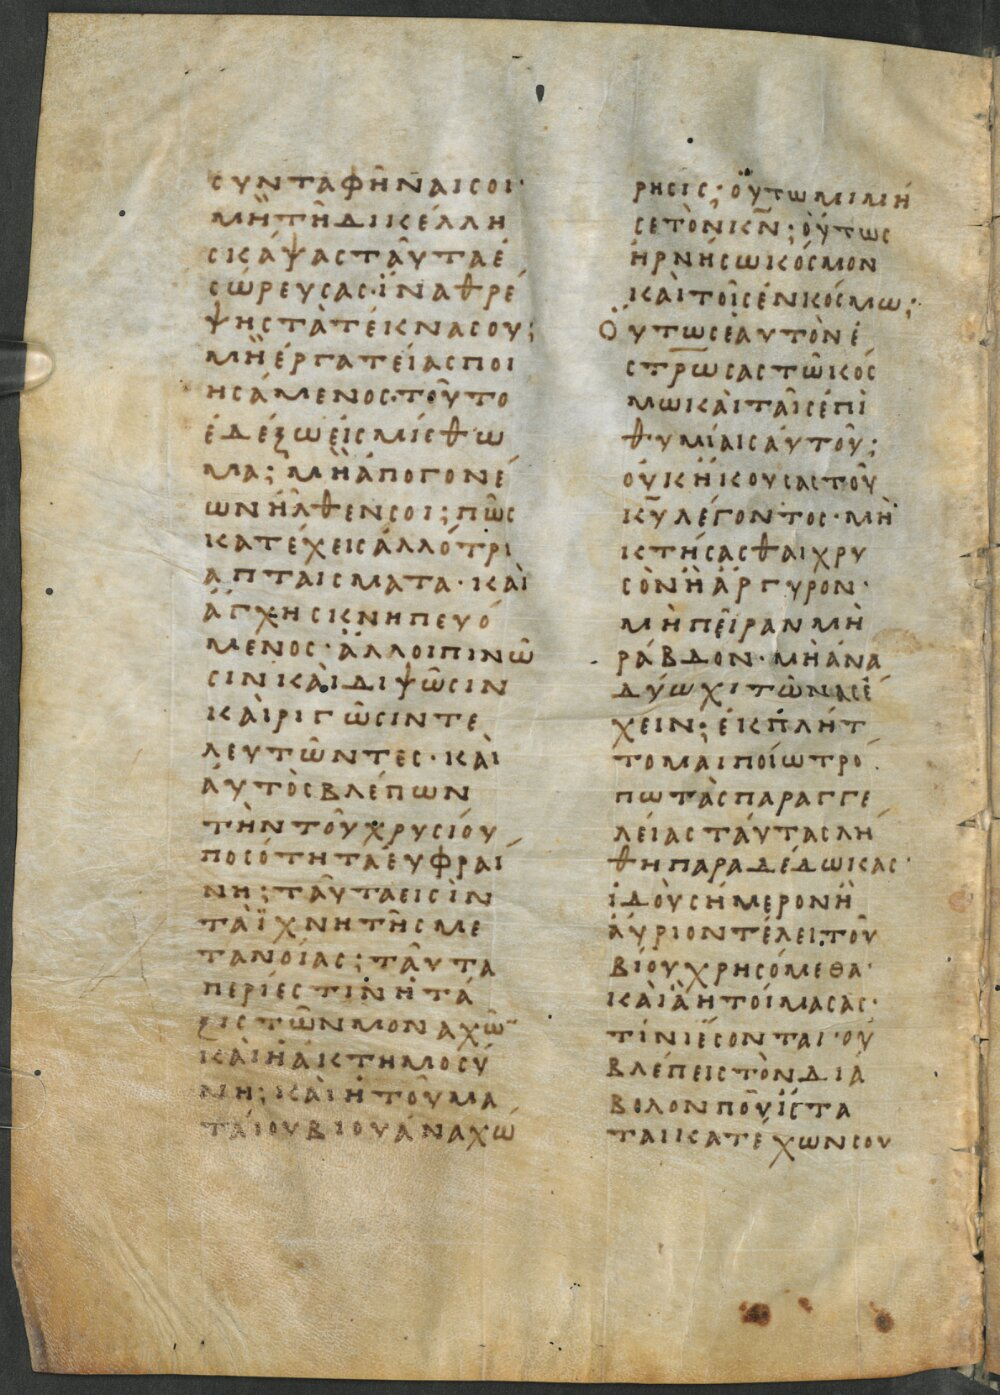 συνταφῆναί σοι·
μὴ τῆ δικέλλη
σκάψας ταῦτα ἐ
σώρευσας· ἵνα θρέ
ψης τὰ τέκνα σου;
μὴ ἐργατείας ποι
ησάμενος· τοῦτο
ἐδέξω εἰς μίσθω
μα; μὴ ἀπὸ γονέ
ων ἦλθέν σοι; πῶς
κατέχεις ἀλλότρι
α πταίσματα· καὶ
ἄγχης κνηπευό
μενος· ἄλλοι πινῶ
σιν καὶ διψῶσιν
καὶ ριγῶσιν τε
λευτῶντες· καὶ
αὐτὸς βλέπων
τὴν τοῦ χρυσίου
ποσότητα εὐφραί
νη; ταῦτα εἰσὶν
τὰ ἴχνη τῆς με
τανοίας; ταῦτα
περίεστιν ἡ τά
ξις τῶν μοναχῶ̅
καὶ ἡ ἀκτημοσύ
νη; καὶ ἡ τοῦ μα
ταίου βίου ἀναχώ
ρησις; οὕτω μιμή
σε τὸν κ̅ν̅; οὕτως
ἠρνήσω κόσμον
καὶ τοῖς ἐν κόσμω;
Οὕτως ἑαυτὸν ἐ
στρωσας τῶ κόσ
μω καὶ ταῖς ἐπι
θυμίαις αὐτοῦ;
οὐκ ἤκουσας τοῦ
κ̅υ̅ λέγοντος· μὴ
κτήσασθαι χρυ
σὸν ἢ ἄργυρον·
μὴ πεῖραν μὴ
ράβδον· μὴ ἀνα
δύω χιτῶνας ἔ
χειν; ἐκπλήτ
τομαι ποίω τρό
πω τὰς παραγγε
λείας ταύτας λή
θη παραδέδωκας·
ἰδοὺ σήμερον ἢ
αὔριον τέλει τοῦ
βίου χρησόμεθα·
καὶ ἃ ἡτοίμασας·
τίνι ἔσονται· οὐ
βλέπεις τὸν διά
βολον ποῦ ἵστα
ται κατέχων σου